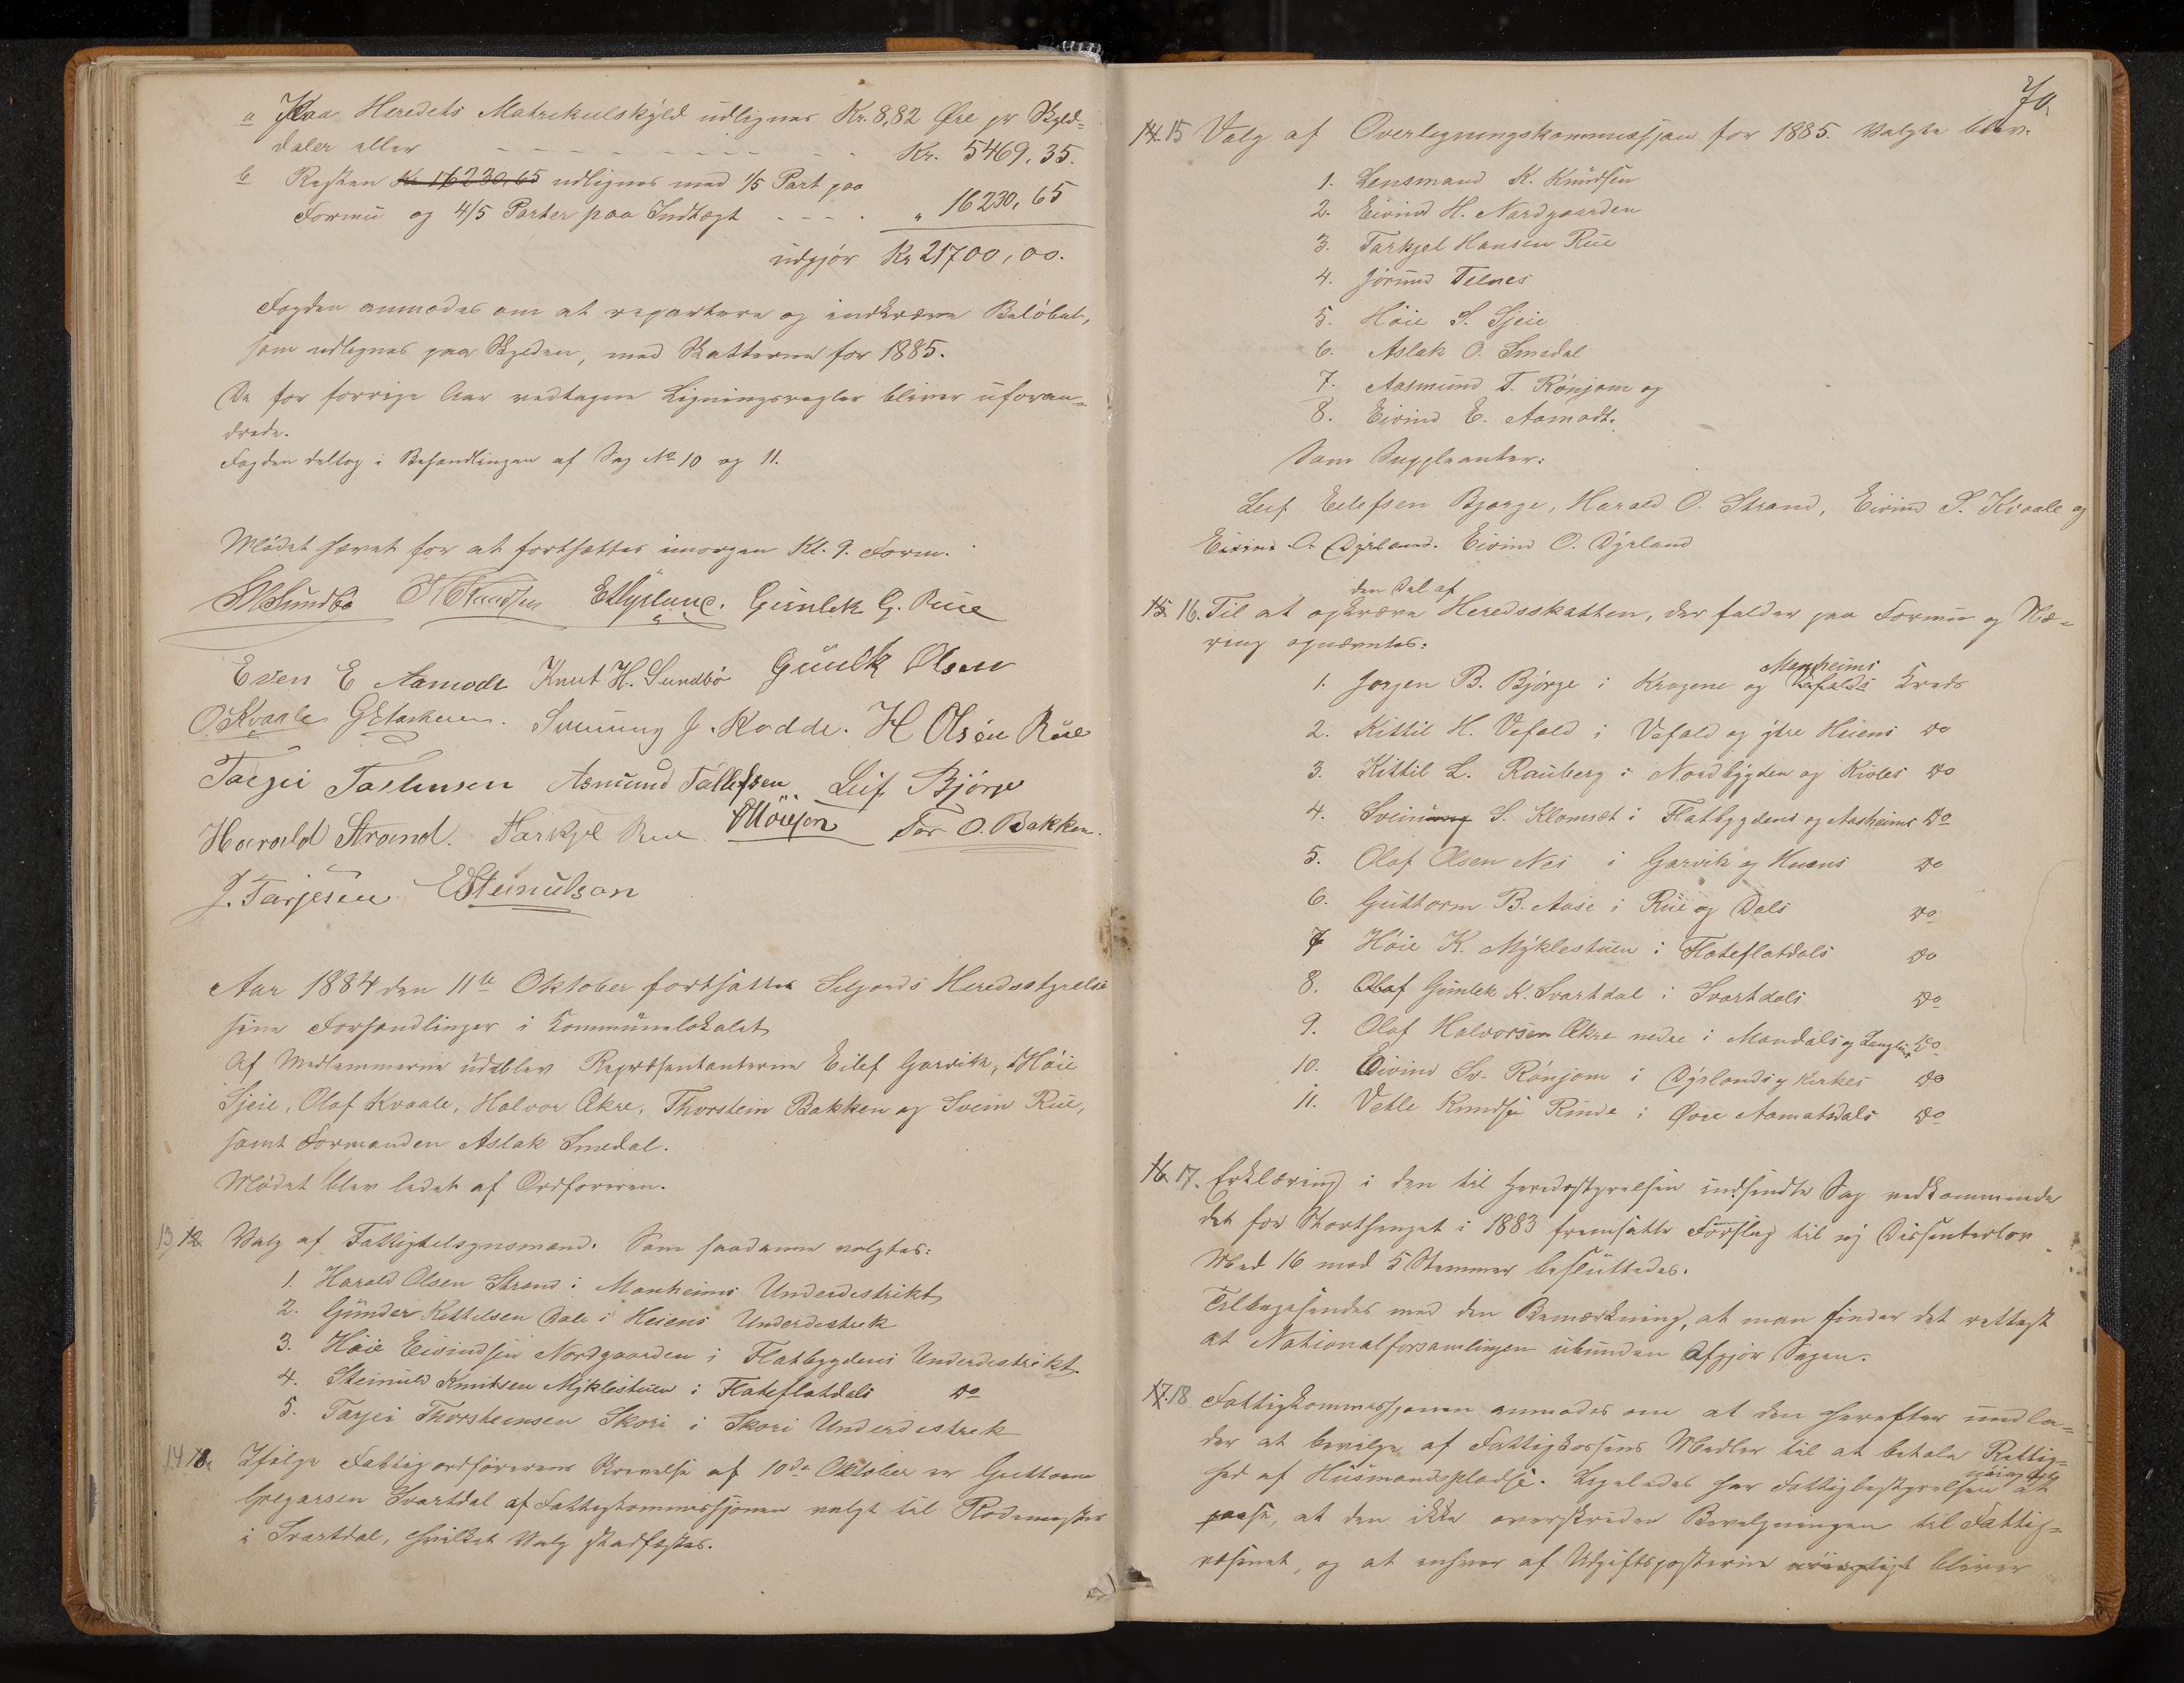 a Paa Heredets Matrikulskyld udlignes Kr. 8,82 Øre pr Skyld-
daler eller - - - - - - - - - - Kr. 5469,35.
b Resten Kr 16230,65 udlignes med 1/5 Part paa
Formue og 4/5 Parter paa Indtægt - - - - „ 16230,65
udgjør Kr 21700,00.
Fogden anmodes om at repartere og indkræve Beløbet,
som udlignes paa Skylden, med Skatterne for 1885.
De for forrige Aar vedtagne Ligningsregler bliver uforan-
drede.
Fogden deltog i Behandlingen af Sag No 10 og 11.
Mødet hævet for at fortsættes imorgen Kl. 9. Form.
Sundbø K Knudsen Gunlek G. Rue
Even E Aamodt Knut H. Sundbø Gunlk Olsen
O Kvaale Svenung J. Kodde. H Olsen Rue
Tarjei Tostensen Asmund Tallefsen Leif Bjørge
Harald Strand. Tarkjel Rue Tor O. Bakken.
J. Tarjesen E Steinulson
Aar 1884 den 11te Oktober fortsatte Seljords Heredsstyrelse
sine Forhandlinger i Kommunelokalet
Af Medlemmerne udeblev Repræsentanterne Eilef Garvik, Høie
Sjeie, Olaf Kvaale, Halvor Ækre, Thorstein Bakken og Svein Rue,
samt Formanden Aslak Smedal.
Mødet blev ledet af Ordføreren.
13 12 Valg af Fattigtilsynsmænd. Som saadanne valgtes:
1. Harald Olsen Strand i Manheims Underdistrikt
2. Gunder Kittelsen Dale i Heiens Underdistrik
3. Høie Eivindsen Nordgaarden i Flatbygdens Underdistrikt
4. Steinuld Knudsen Myklestuen i Flateflatdals do
5. Tarjei Thorsteinsen Skori i Skori Underdistrik
14 13. Ifølge Fattigordførerens Skrivelse af 10de Oktober er Guttorm
Gregarsen Svartdal af Fattigkommissionen valgt til Rodemester
i Svartdal, hvilket Valg stadfæstes.
70
14. 15 Valg af Overligningskommissjon for 1885. Valgte blev:
1. Lensmand K. Knudsen
2. Eivind H. Nordgaarden
3. Tarkjel Hansen Rue
4. Jørund Telnes
5. Høie S. Sjeie
6. Aslak O. Smedal
7. Aasmund T. Rønjom og
8. Eivind E. Aamodt.
Som Suppleanter:
Leif Eilefsen Bjørge, Harald O. Strand, Eivind S. Kvaale og
Eivind O. Dyrland. Eivind O. Dyrland
den Del af
15 16. Til at opkræve Heredsskatten, der falder paa Formue og Næ-
ring opnævntes:
Manheims
1. Jørgen B. Bjørge i Krogene og Vefalds Kreds
2. Kittil H. Vefald i Vefald og ytre Heiens do
3. Kittil L. Rauberg i Nordbygden og Kivles do
4. Sveinung S. Klomset i Flatbygdens og Aasheims do
5. Olaf Olsen Nes i Garvik og Huens do
6. Guttorm B. Aase i Rue og Dals do
7 Høie K. Myklestuen i Flateflatdals do
8. Olaf Gunlek K. Svartdal i Svartdals do
9. Olaf Halvorsen Ækre nedre i Mandals og Langlim do
10. Eivind Sv. Rønjom i Dyrlands og Kirkes do
11. Vetle Knudsen Rinde i Øvre Aamotsdals do
16 17. Erklæring i den til Heredsstyrelsen indsendte Sag vedkommende
det for Storthinget i 1883 fremsatte Forslag til ny Dissenterlov
Med 16 mod 5 Stemmer besluttedes.
Tilbagesendes med den Bemærkning, at man finder det rettest
at Nationalforsamlingen ubunden afgjør Sagen.
17. 18 Fattigkommissjonen anmodes om at den herefter undla-
der at bevilge af Fattigkassens Midler til at betale Rettig-
hed af Husmandspladse. Ligeledes har Fattigbestyrelsen nøiagtig at
paase, at den ikke overskrider Bevilgningen til Fattig-
væsenet, og at enhver af Udgiftsposterne nøiagtigt bliver